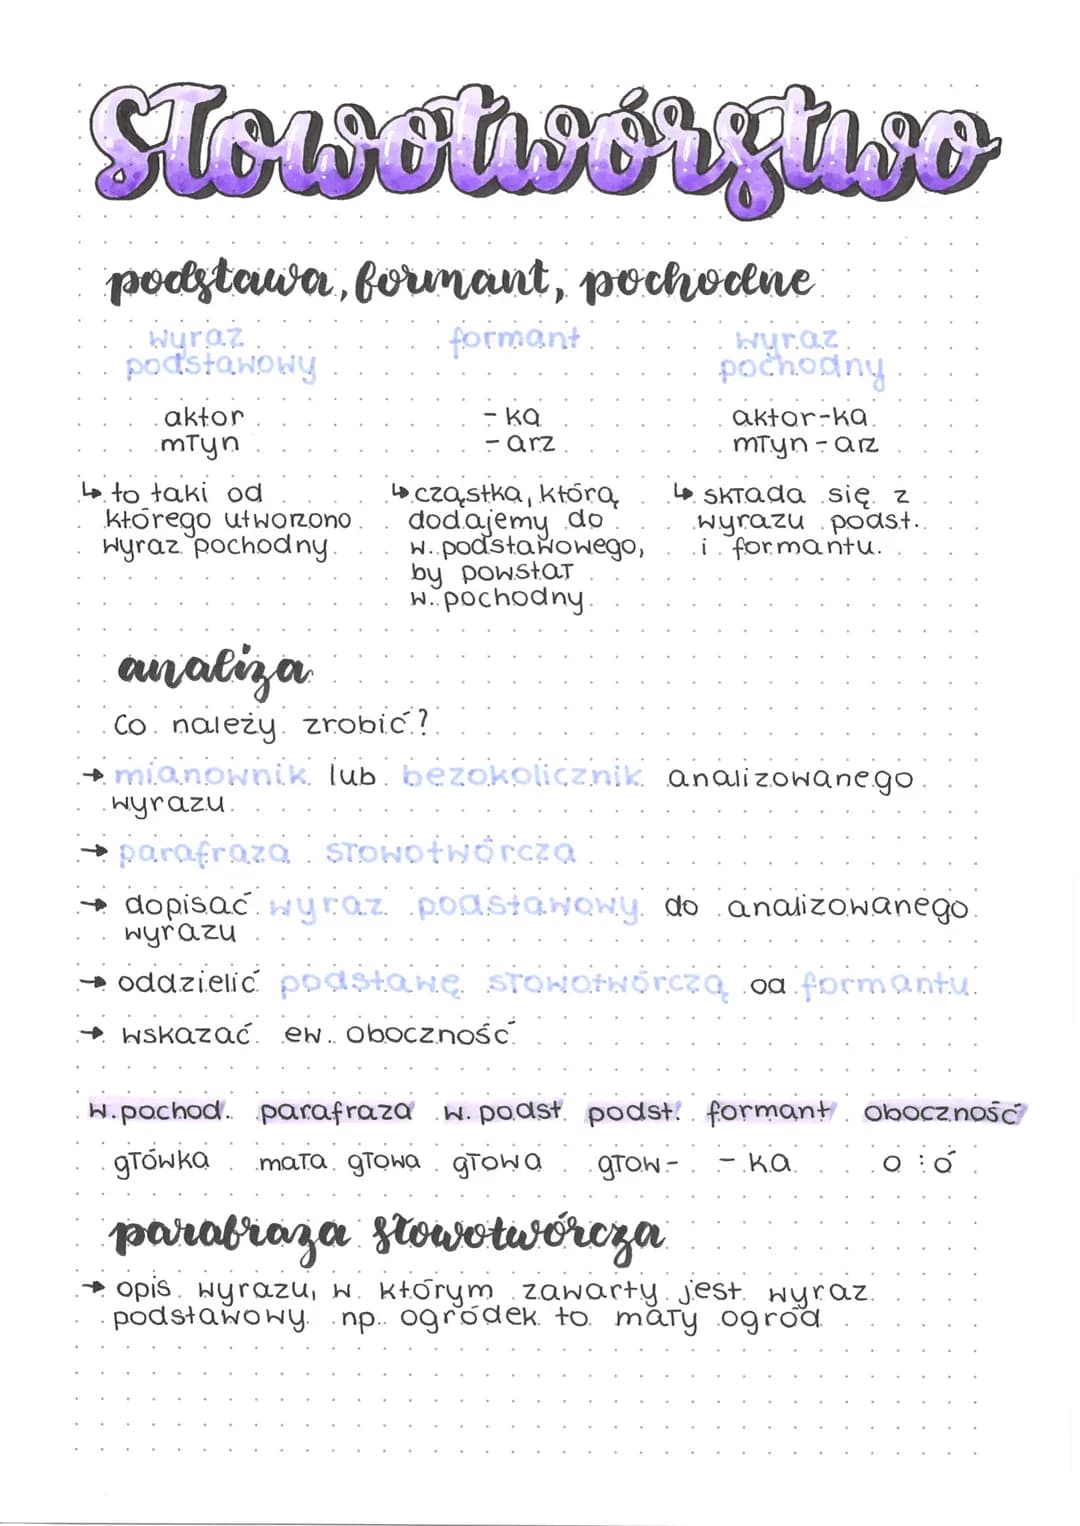 Słowotwórstwo
podstawa, formant, pochodne
wyraz podstawowy
formant
wyraz pochodny
aktor
-ka
aktor-ka
młyn
-arz
młyn-arz
↳ to taki od
którego utworzono
wyraz pochodny
↳ cząstka, którą
dodajemy do
w. podstawowego,
by powstał
w. pochodny.
↳ składa się z
wyrazu podst.
i formantu.
analiza
Co należy zrobić?
→ mianownik lub bezokolicznik analizowanego
wyrazu
→ parafraza słowotwórcza
→ dopisać wyraz podstawowy do analizowanego
wyrazu
→ oddzielić podstawę słowotwórczą od formantu
→ wskazać ew. oboczność
w. pochod. parafraza w. podst. podst. formant oboczność
główka mała głowa głowa głow- -ka o : ó
parafraza słowotwórcza
→ opis wyrazu, w którym zawarty jest wyraz
podstawowy np. ogródek to mały ogród